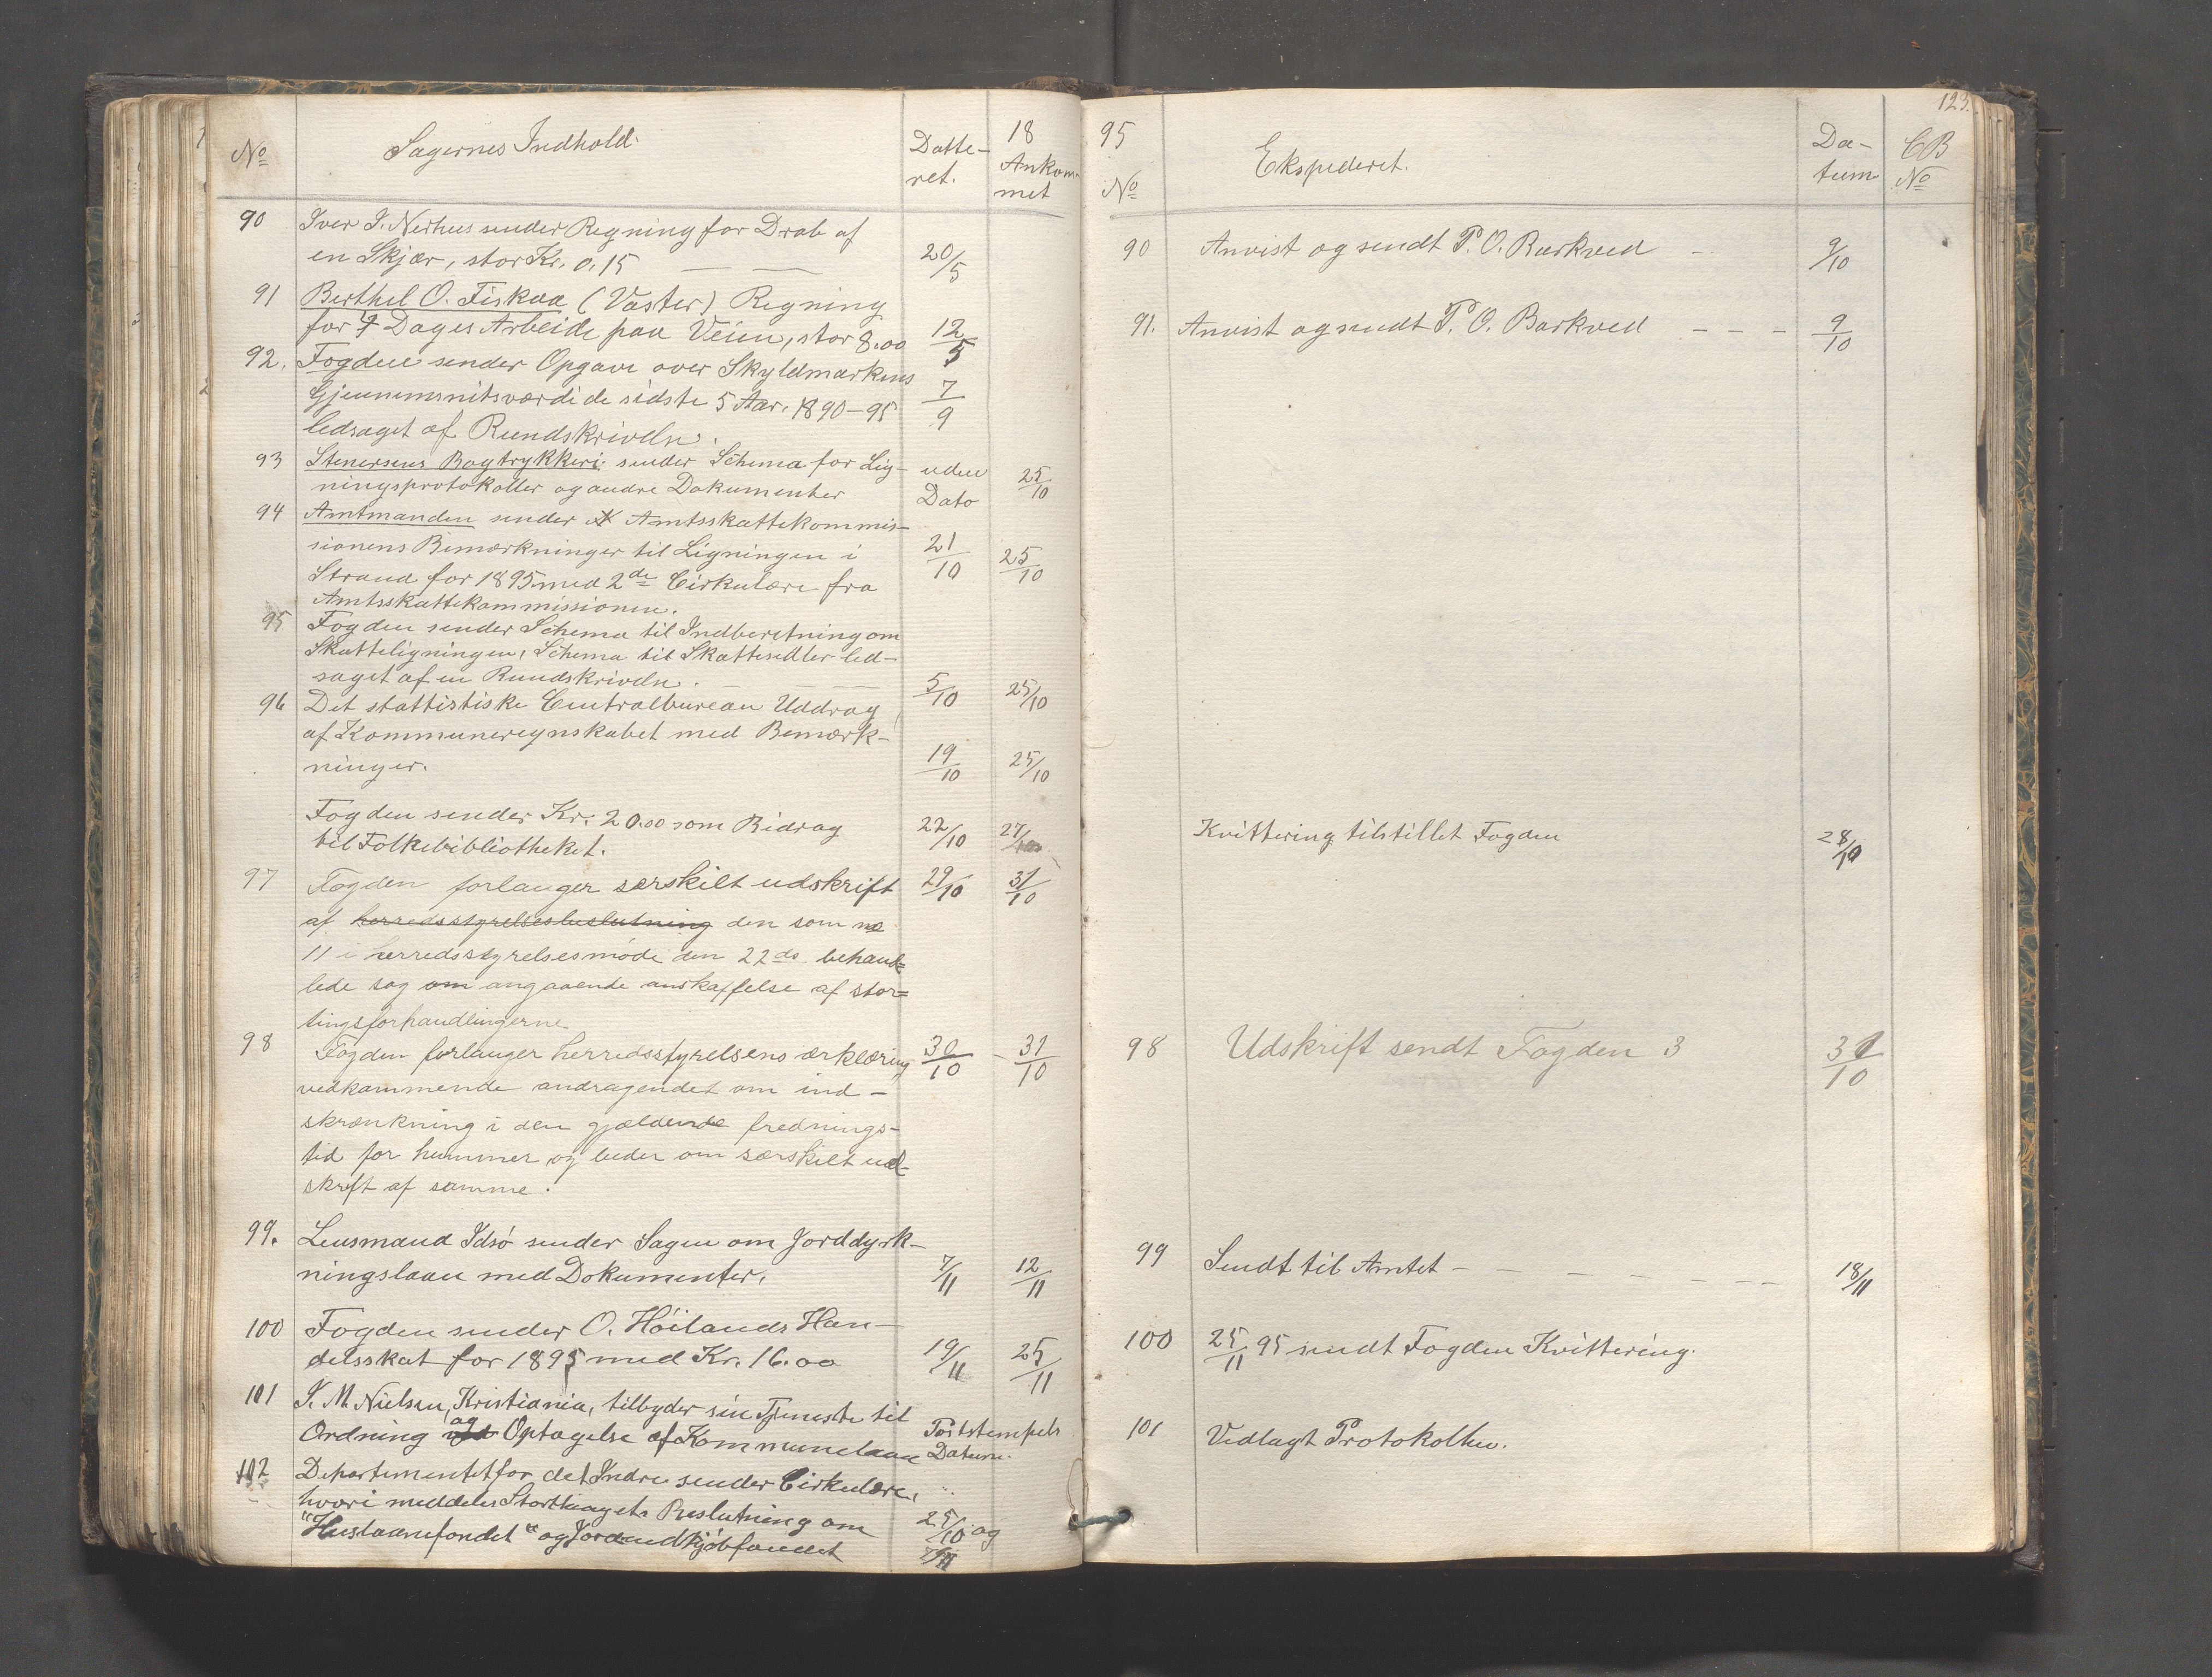 No Sagernes Indhold. Datte- 18
ret. Ankom-
met
90 Iver I. Nerhus sender Regning for Drab af
en Skjær, stor Kr. 0.15 — — 20/5
91 Berthel O. Fiskaa (Vaster) Regning
for 4 Dages Arbeide paa Veien, stor 8.00 12/5
92. Fogden sender Opgave over Skyldmarkens
Gjennemsnitsværdi de sidste 5 Aar. 1890-95 7/9
ledsaget af Rundskriveln.
93 Stenersens Bogtrykkeri sender Schema for Lig- uden 25/10
ningsprotokoller og andre Dokumenter Dato
94 Amtmanden sender Amtsskattekommis-
sionens Bemærkninger til Ligningen i 21/10 25/10
Strand for 1895 med 2de Cirkulære fra
Amtsskattekommissionen.
95 Fogden sender Schema til Indberetning om
Skatteligningen, Schema til Skattesedler led-
saget af en Rundskriveln. — — 5/10 25/10
96 Det stattistiske Centralbureau Uddrag
af Kommuneregnskabet med Bemærk-
ninger. 19/10 25/10
Fogden sender Kr. 20.00 som Bidrag 22/10 27/10
til Folkebibliotheket.
97 Fogden forlanger særskilt udskrift 29/10 31/10
af herredsstyrelsesbeslutning den som no
11 i herredsstyrelsesmöde den 22 ds. behand=
lede sag om angaaende anskaffelse af stor=
tingsforhandlingerne
98 Fogden forlanger herredsstyrelsens ærklæring 30/10 - 31/10
vedkommende andragendet om ind-
skrænkning i den gjældende frednings-
tid for hummer og beder om særskilt ud-
skrift af samme.
99. Lensmand Idsö sender Sagen om Jorddyrk-
ningslaan med Dokumenter. 7/11 12/11
100 Fogden sender O. Höilands Han-
delsskat for 1895 med Kr. 16.00 19/11 25/11
101 I. M. Nielsen, Kristiania, tilbyder sin Tjeneste til
Ordning og Optagelse af Kommunelaan Poststempels
Datum.
102 Departementet for det Indre sender Cirkulære,
hvori meddeles Storthingets Beslutning om 25/10 og
"Huslaanefondet" og Jordindkjöbfondet
95 123.
No Ekspederet. Da- CB
tum No
90 Anvist og sendt P. O. Barkved - 9/10
91. Anvist og sendt P. O. Barkved - - - 9/10
Kvittering tilstillet Fogden 28/10
98 Udskrift sendt Fogden 31/10
99 Sendt til Amtet - - - - - - - 18/11
100 25/11 95 sendt Fogden Kvittering.
101 Vedlagt Protokollen.